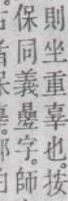 則坐重辠也。按
保同義曡字。師